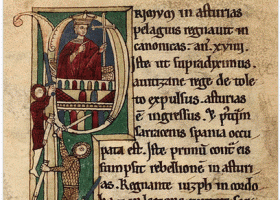 PRimꝰ in asturias
pelagius regnauit in
canonicas. añ. xviiii.
Iste ut supradiximus. a
uuitizane rege de tole
to expulsus. asturias
ē ingressus. Et p̄q̄m
sarraceni spania occu
pata est. Iste primū contͣ eis
sumpsit rebellionē in asturi
as. Regnante iuzeph in cordo